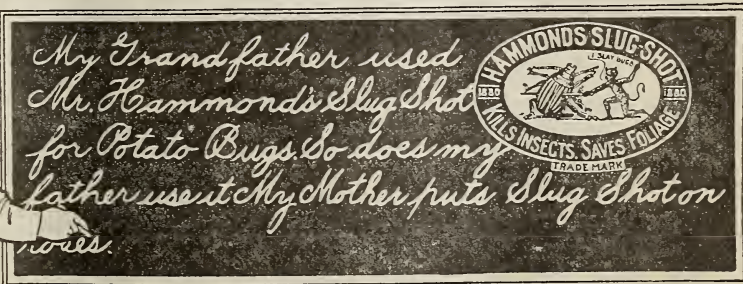 My Grandfather used
Mr. Hammond's Slug Shot
for Potato Bugs. So does my
father use it My Mother puts Slug Shot on
roses.
HAMMONDS SLUG-SHOT
I SLAY BUGS
1880 1880
KILLS INSECTS. SAVES FOLIAGE
TRADE MARK